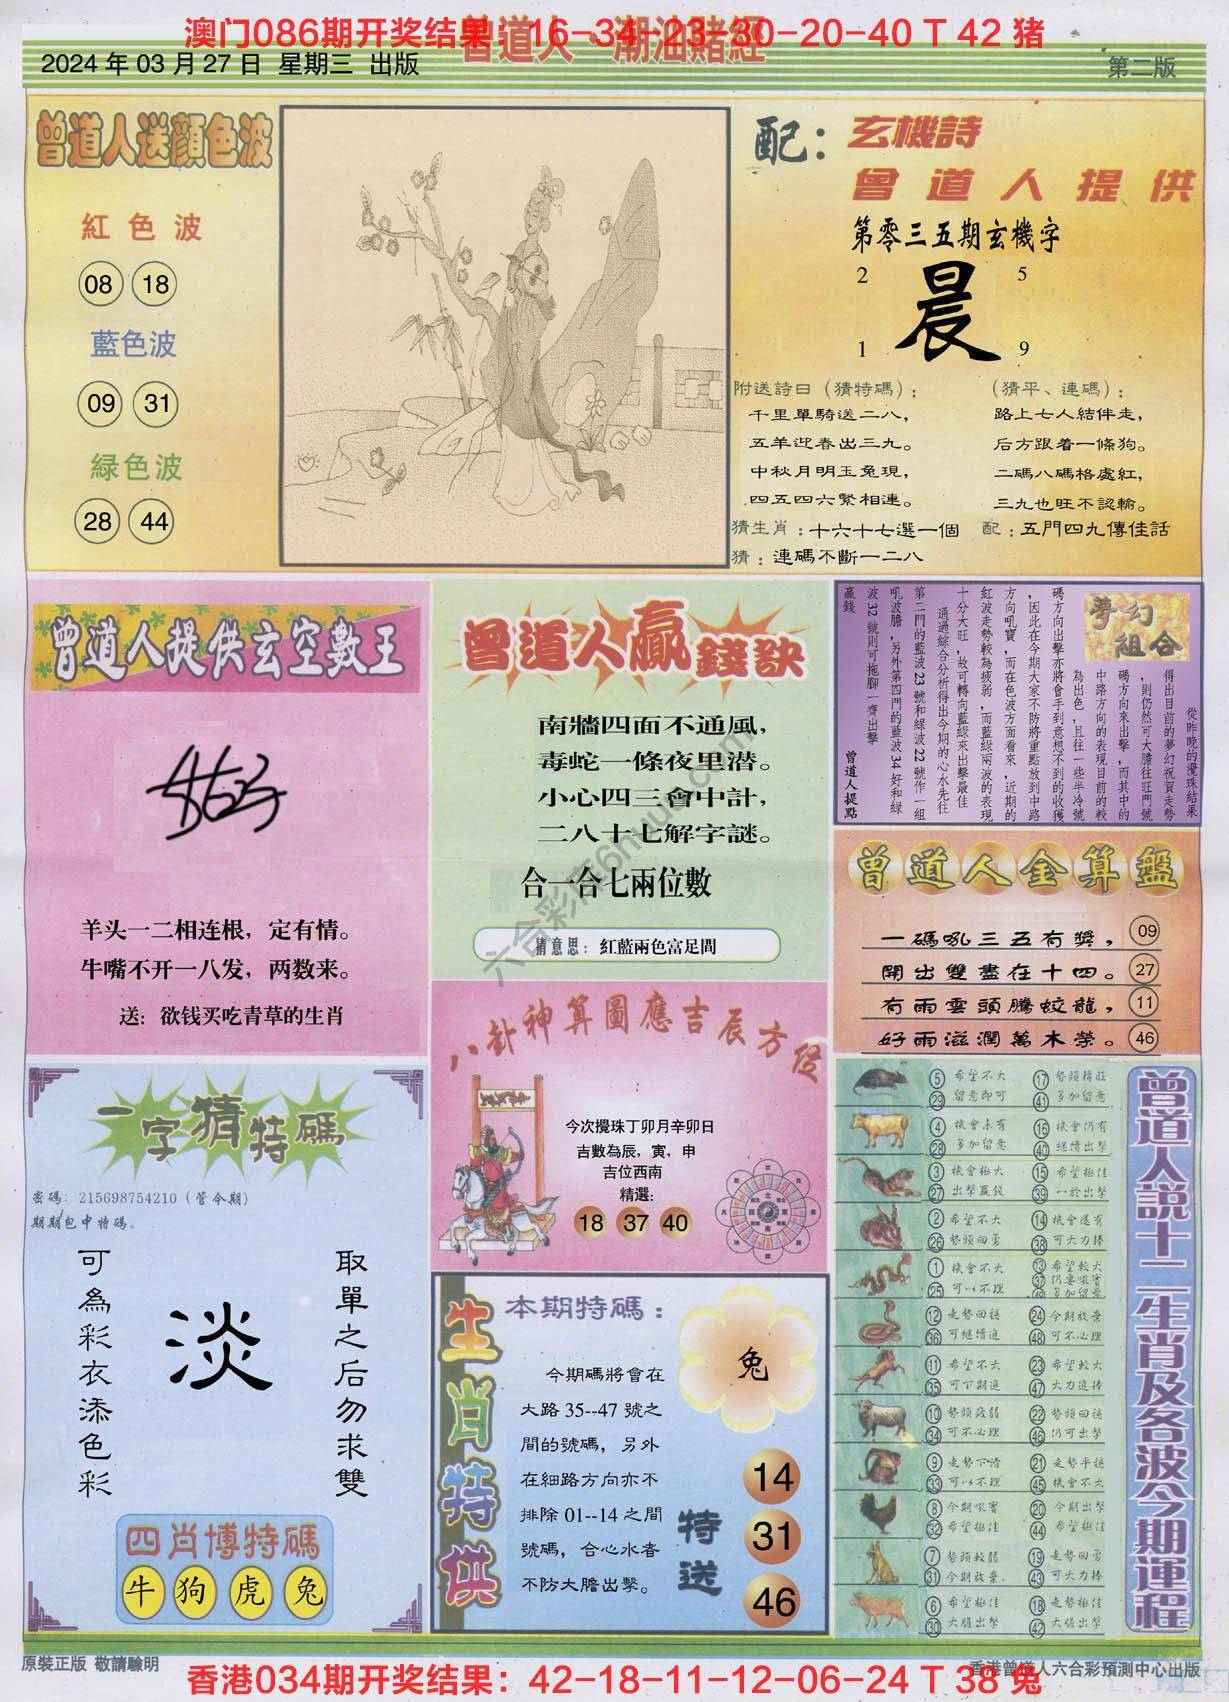 澳门086期开奖结果：16-34-23-30-20-40 T 42 猪
曾道人·潮汕賭經
2024 年 03 月 27 日 星期三 出版
第二版
曾道人送顔色波
紅色波
08 18
藍色波
09 31
緑色波
28 44
配：
玄機詩
曾道人提供
第零三五期玄機字
2 5
晨
1 9
附送詩曰（猜特碼）：
千里單騎送二八，
五羊迎春出三九。
中秋月明玉兔現，
四五四六緊相連。
（猜平、連碼）：
路上七人結伴走，
后方跟着一條狗。
二碼八碼格處紅，
三九也旺不認輸。
猜生肖：十六十七選一個
配：五門四九傳佳話
猜：連碼不斷一二八
曾道人提供玄空數王
羊头一二相连根，定有情。
牛嘴不开一八发，两数来。
送：欲钱买吃青草的生肖
曾道人贏錢訣
南牆四面不通風，
毒蛇一條夜里潜。
小心四三會中計，
二八十七解字謎。
合一合七兩位數
猜意思：紅藍兩色富足間
夢幻組合
從昨晚的攪珠結果
得出目前的夢幻祝賀走勢
，則仍然可大膽往旺門號
碼方向來出擊，而其中的
中路方向的表現目前的較
為出色，且往一些半冷號
碼方向出擊亦將會手到意想不到的收獲
，因此在今期大家不防將重點放到中路
方向吼寶，而在色波方面看來，近期的
紅波走勢較為疲弱，而藍緑兩波的表現
十分大旺，故可轉向藍緑來出擊最佳
通過綜合分析得出今期的心水先往
第二門的藍波 23 號和緑波 22 號作一組
吼波膽，另外第四門的藍波 34 好和緑
波 32 號則可拖腳一齊出擊
贏錢
曾道人提點
曾道人金算盤
一碼吼三五有獎， 09
開出雙盡在十四。 27
有雨雲頭騰蛟龍， 11
好雨滋潤萬木榮。 46
八卦神算圖應吉辰方位
今次攪珠丁卯月辛卯日
吉數為辰，寅，申
吉位西南
精選：
18 37 40
一字猜特碼
密碼：215698754210（管今期）
期期包中特碼。
取單之后勿求雙
淡
可為彩衣添色彩
四肖博特碼
牛 狗 虎 兔
生肖特供
本期特碼：
兔
今期碼將會在
大路 35--47 號之
間的號碼，另外
在細路方向亦不
排除 01--14 之間
號碼，合心水者
不防大膽出擊。
特送
14
31
46
曾道人說十二生肖及各波今期運程
5 希望不大 17 勢頭精旺
29 留意即可 41 多加留意
4 機會未有 16 機會仍有
28 多加留意 40 繼續出擊
3 機會極大 15 希望極佳
27 出擊贏錢 39 一於出擊
2 希望不大 14 機會還有
26 勢頭回勇 38 可大力捧
1 機會不大 13 希望較大
25 可以不理 37 仍要吼實
49 多加留意
12 走勢回穩 24 今期放棄
36 可繼續追 48 可不必理
11 希望不大 23 希望較大
35 可下期追 47 大力追捧
10 勢頭疲弱 22 勢頭回穩
34 可不必理 46 仍可出擊
9 走勢下滑 21 走勢平穩
33 可以不理 45 機會不大
8 今期吼實 20 今期出擊
32 希望極佳 44 希望極佳
7 勢頭較弱 19 走勢回勇
31 今期放棄 43 可大力捧
6 希望極佳 18 走勢極佳
30 大膽出擊 42 大膽出擊
原裝正版 敬請驗明
香港曾道人六合彩預測中心出版
香港034期开奖结果：42-18-11-12-06-24 T 38 兔